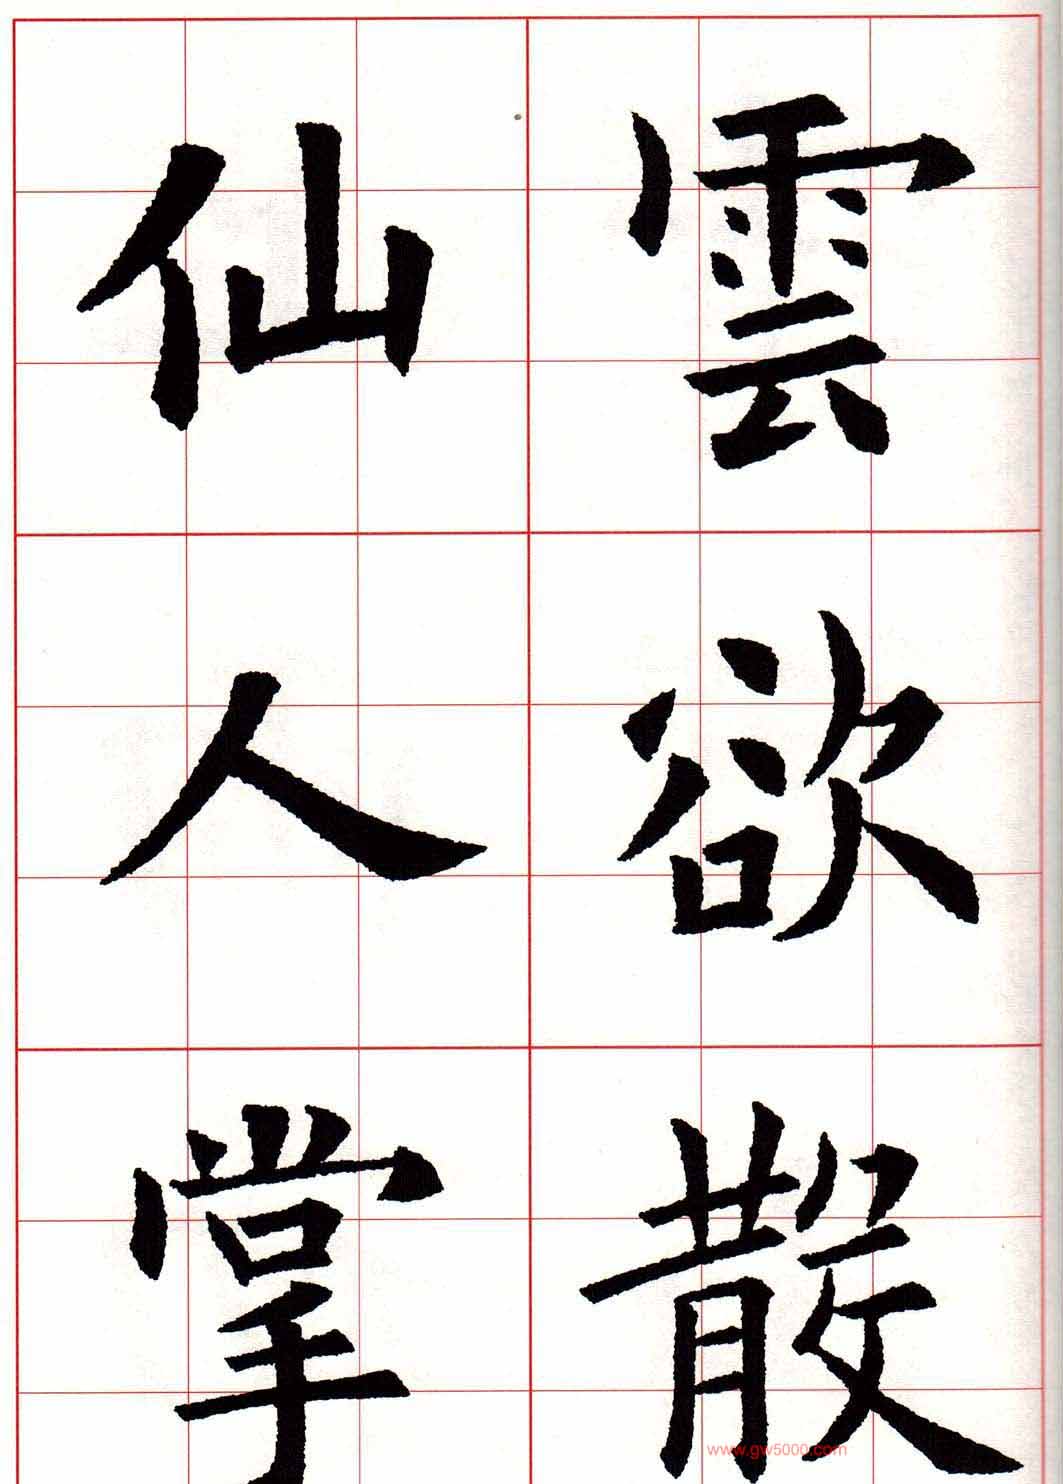 雲欲散
仙人掌
www.gw5000.com